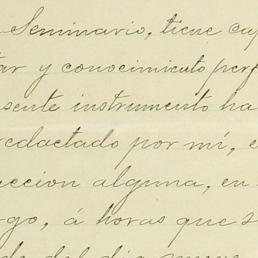 Seminario, tiene cap
tar y conocimiento perf
sente instrumento ha
redactado por mí, e
accion alguna, en
rgo, á horas que s
de del dia nueve